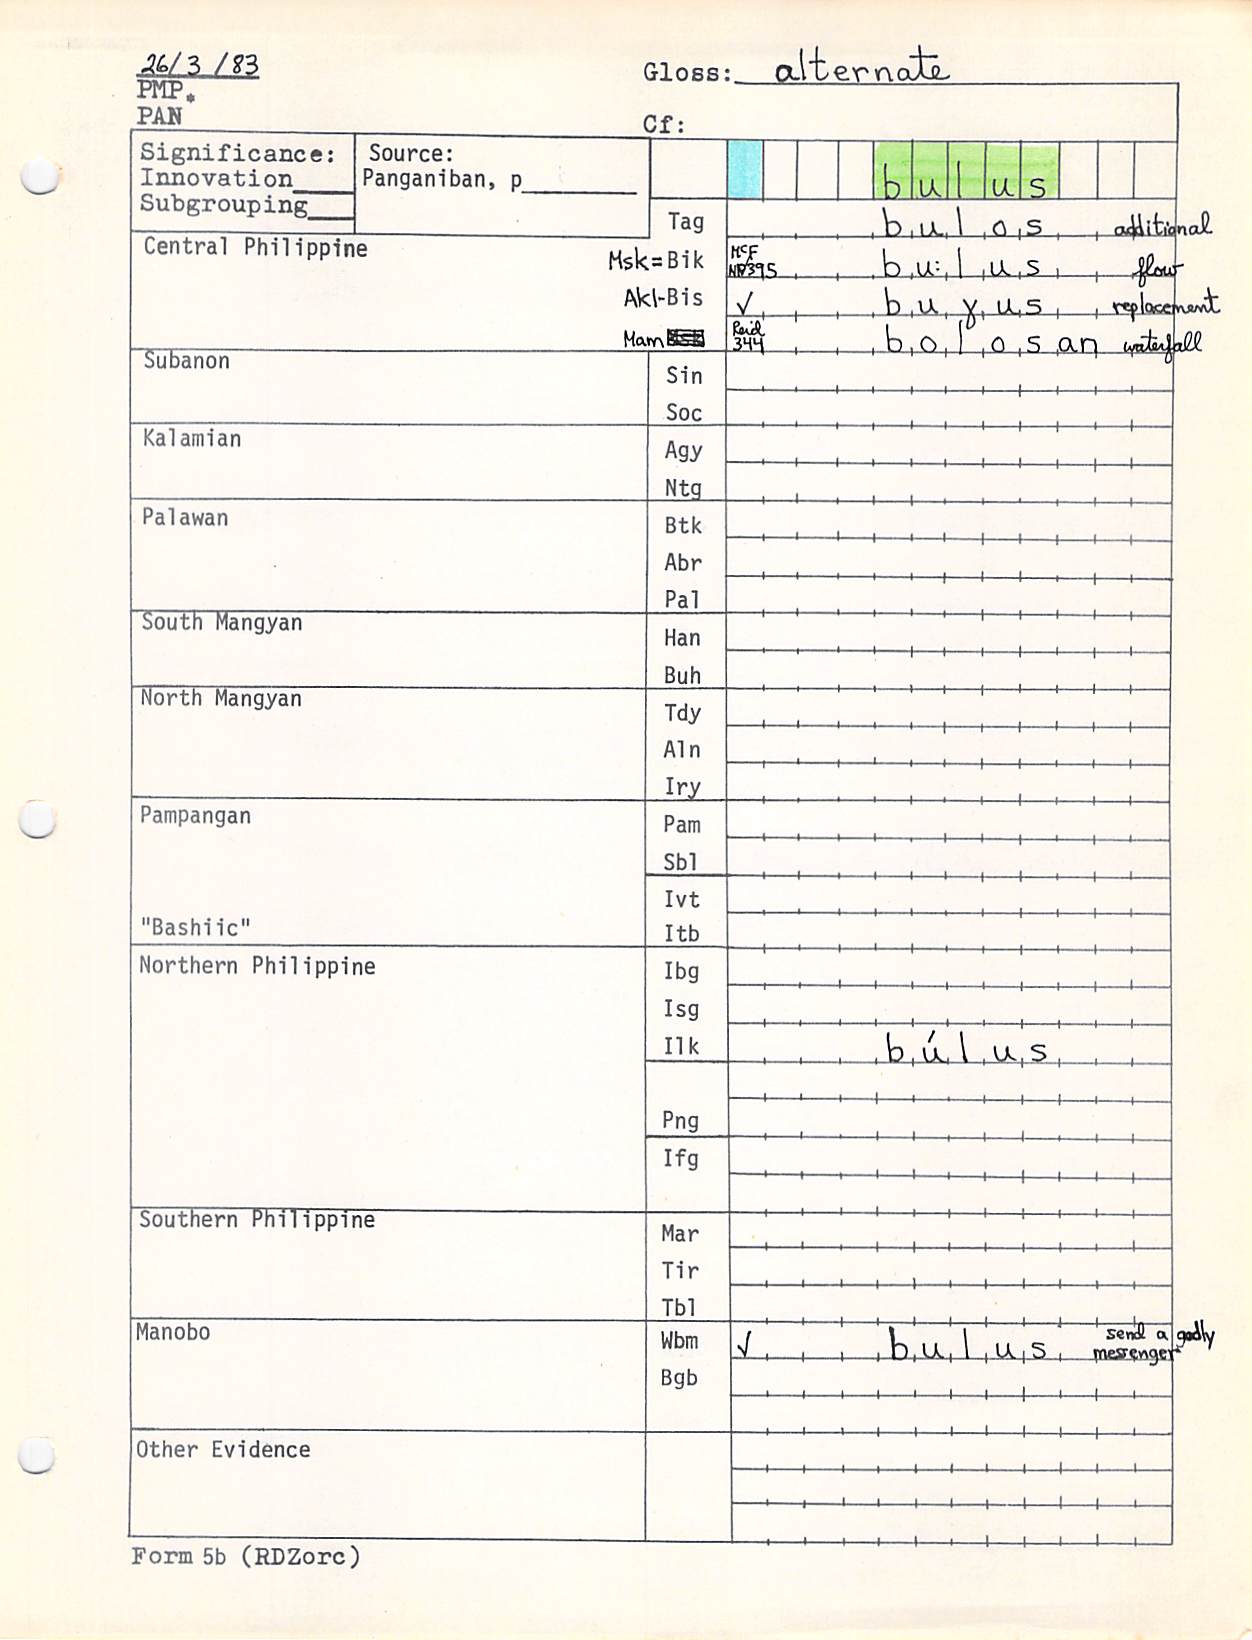 26/3/83
Gloss: alternate
PMP*
PAN
Cf:
Significance:
Innovation____
Subgrouping___
Source:
Panganiban, p________
bulus
Tag bulos additional
Central Philippine
Msk=Bik McF bu:lus flow
Akl-Bis ✓ buɣus replacement
Mam Reid 344 bolosan waterfall
Subanon
Sin
Soc
Kalamian
Agy
Ntg
Palawan
Btk
Abr
Pal
South Mangyan
Han
Buh
North Mangyan
Tdy
Aln
Iry
Pampangan
Pam
Sbl
Ivt
"Bashiic"
Itb
Northern Philippine
Ibg
Isg
Ilk búlus
Png
Ifg
Southern Philippine
Mar
Tir
Tbl
Manobo
Wbm ✓ bulus send a godly messenger
Bgb
Other Evidence
Form 5b (RDZorc)